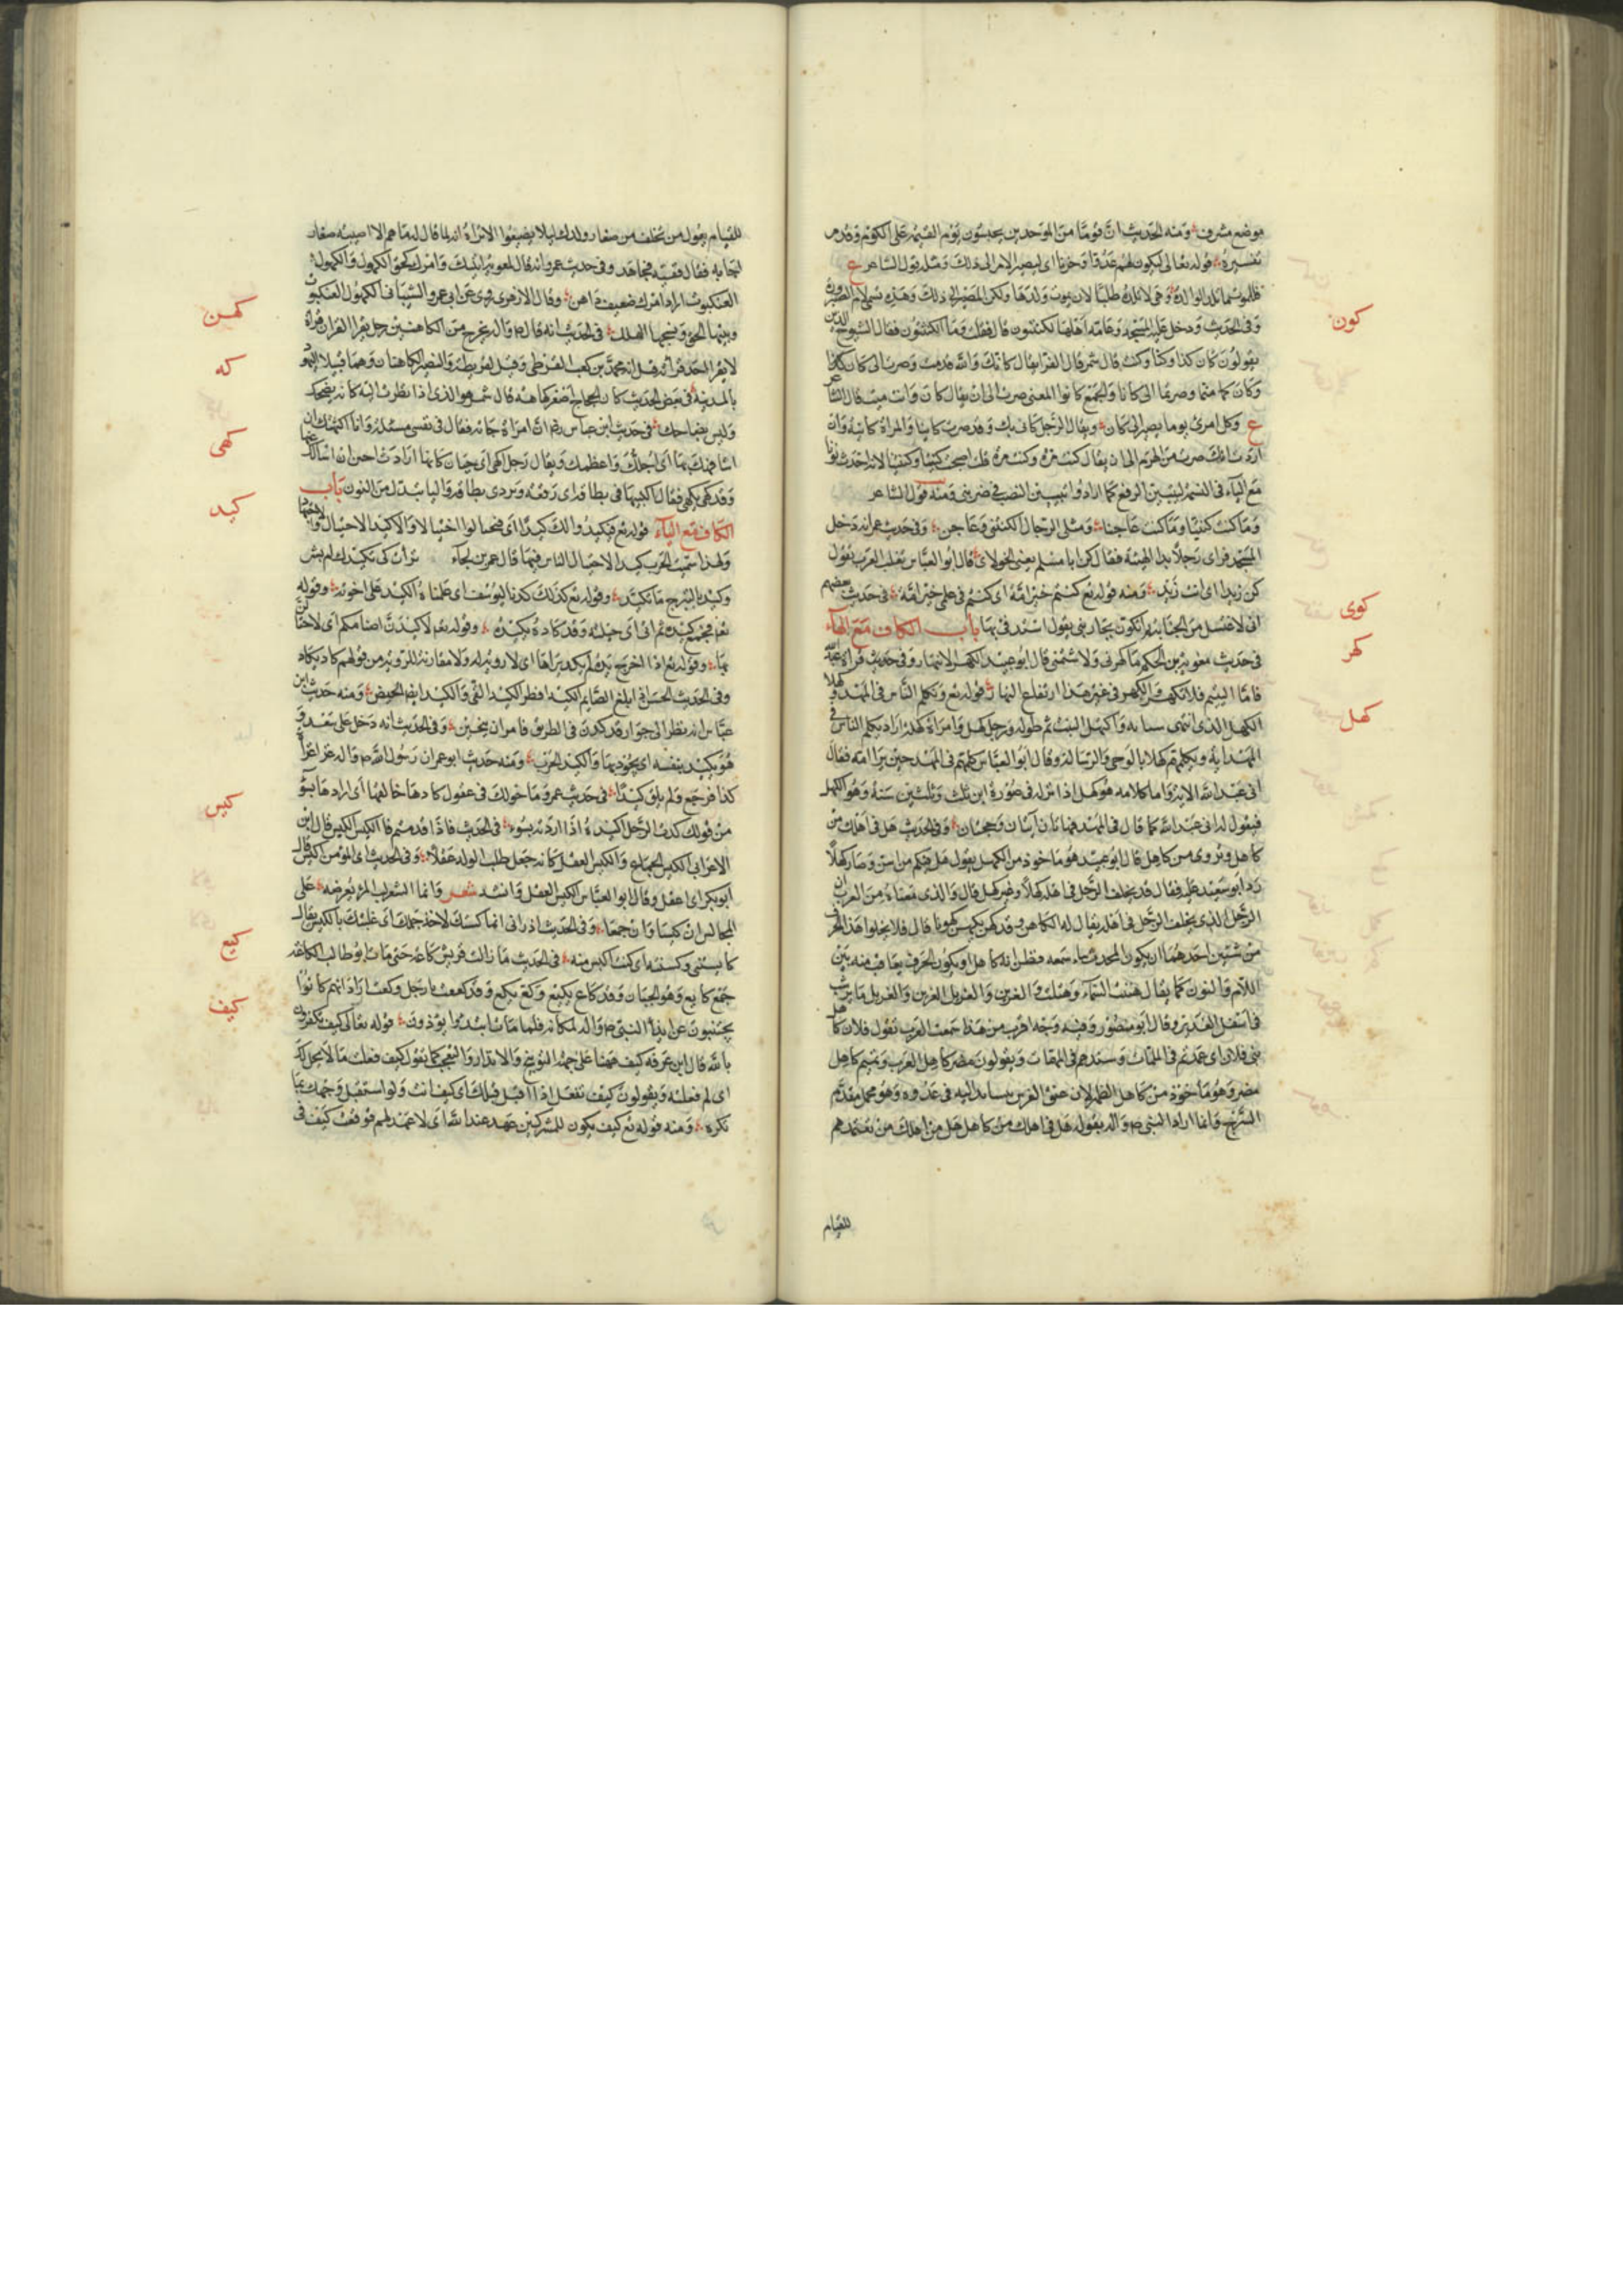 موضع مشرف ومنه الحديث ان قوما من الموحدين يحبسون يوم القيمه على الكوم وقدم
تفسيره قوله تعالى ليكون لهم عدوا وحزنا اى ليصير الامر الى ذلك ومثله قول الشاعر ع
كون
وفى الحديث ودخل عليه المسجد وعامة اهلها الكنتيون قال فقلت وما الكنتيون فقال الشيوخ الذين
يقولون كان كذا وكذا وكنت قال شمر قال الفرا يقال كانك والله قد مت وصرت الى كان كانكما
ع وكل امرئ يوما يصير الى كان ويقال للرجل كانى بك وقد صرت كانيا والمراة كانية وان
اردت انك صرت من الهرم الى ان يقال كنت مرة وكنت مرة قلت اصبحت كنتيا وكنتنيا لانه احدث نونا
مع الياء فى النسبة ليتبين الرفع كما ارادوا تبيين النصب فى ضربنى ومنه قول الشاعر
وما كنت كنتيا وما كنت عاجنا ومثلى الرجال الكنتنى وعاجن وفى حديث عمر انه دخل
المسجد فراى رجلا بذ الهيئة فقال كن ابا مسلم يعنى الخولانى قال ابو العباس تغلب العرب تقول
كن زيدا اى انت زيد ومنه قوله تع كنتم خير امة اى كنتم فى علمى خير امة فى حديث بعضهم
كوى
انى لاغتسل من الجنابة ثم اتكوى بجاريتى يقول استدفى بها باب الكاف مع الهاء
كهر
فى حديث معوية بن الحكم ما كهرنى ولا شتمنى قال ابو عبيد الكهر الانتهار وفى حديث قراة عبد الله
فاما اليتيم فلا تكهر الكهر فى غير هذا ارتفاع النهار قوله تع ويكلم الناس فى المهد وكهلا
كهل
الكهل الذى انتهى شبابه واكتهل النبت تم طوله ورجل كهل وامراة كهلة اراد يكلم الناس فى
المهد اية ويكلمهم كهلا بالوحى والرسالة وقال ابو العباس كلمهم فى المهد حين برا امه فقال
انى عبد الله الاية واما كلامه هو كهل اذا انزله فى صورة ابن ثلث وثلثين سنة وهو الكهل
فيقول لهم انى عبد الله كما قال فى المهد فهاتان آيتان وحجتان وفى الحديث هل فى اهلك من
كاهل ويروى من كاهل قال ابو عبيد هو ماخوذ من الكهل يقول هل فيكم من اسن وصار كهلا
رد ابو سعيد عليه فقال قد يخلف الرجل فى اهله كهلا وغير كهل قال والذى سمعناه من العرب ان
الرجل الذى يخلف الرجل فى اهله يقال له الكاهن وقد كهن يكهن كهونا قال فلا يخلوا هذا الحرف
من شيئين احدهما ان يكون المحدث ساء سمعه فظن انه كاهل او يكون الحرف يعاقب منه بين
اللام والنون كما يقال هتنت السماء وهتلت والغرين والغريل الغرين والغريل ما يرسب
فى اسفل الغدير وقال ابو منصور وفيه وجه اقرب من هذا سمعت العرب تقول فلان كاهل
بنى فلان اى عمدتهم فى الملمات وسندهم فى المهمات ويقولون مضر كاهل العرب وتميم كاهل
مضر وهو ماخوذ من كاهل الظهر لان عنق الفرس يتساند اليه فى عدوه وهو محمل مقدم
السرج وانما اراد النبى ص واله بقوله هل فى اهلك من كاهل هل من اهلك من تعتمدهم
للقيام
للقيام بعول من تخلف من صغار ولدك ليلا يضيعوا الا تراه انه لما قال له ما هم الا اصيبيه صغار
اجابه فقال ففيهم فجاهد وفى حديث عمرو انه قال لمعوية اتيتك وامرك كحق الكهول والكهول
العنكبوت اراد امرك ضعيف واهن وقال الازهرى روى عن ابى عمرو الشيبانى الكهول العنكبوت
كهن
وبيتها الحق فى الحديث انه قال ص واله يخرج من الكاهنين رجل يقرا القران قراة
كه
لا يقرا احد قراته قيل انه محمد بن كعب القرظى وقيل لقريظة والنضير الكاهنان وهما قبيلا اليهود
بالمدينة فى بعض الحديث كان الحجاج اصفر كهاهة قال شمر هو الذى اذا نظرت اليه كانه يضحك
كهى
وليس بضاحك فى حديث ابن عباس رض ان امراة جاته فقال فى نفسى مسئلة وانا اكتهيك ان
اشافهك بها اى اجلك واعظمك ويقال رجل اكهى اى جبان كانها ارادت احب ان اسالك
كيد
الكاف مع الياء قوله تع فيكيدوا لك كيدا اى فيحتالوا احتيالا والاكيد الاحتيال والاجتهاد
ولهذا سميت الحرب كيدا لاحتيال الناس فيها قال عمر بن لجاء
وقوله تع كذلك كدنا ليوسف اى علمناه الكيد على اخوته وقوله
تع فجمع كيده ثم اتى اى حيلته وقد كاده يكيده وقوله تع لاكيدن اصنامكم اى لاحتالن
بها وقوله تع اذا اخرج يده لم يكد يراها اى لا رويه له ولا مقاربة للروية من قولهم كاد يكاد
وفى الحديث الحسن اذا بلغ الصايم الكيد افطر الكيد القى والكيد ايضا الحيض ومنه حديث ابن
عباس انه نظر الى جوار قد كدن فى الطريق فامر ان ينحين وفى الحديث انه دخل على سعد و
هو يكيد بنفسه اى يجود بها والكيد الحرب ومنه حديث ابو عمر ان رسول الله ص واله غزا غزاة
كذا فرجع ولم يلق كيدا فى حديث عمرو ما قولك فى عقول كادها خالقها اى ارادها بسوء
كيس
من قولك كدت الرجل اكيده اذا اردته بسوء فى الحديث فاذا قدمتم فالكيس الكيس قال ابن
الاعرابى الكيس الجماع والكيس العقل كانه جعل طلب الولد عقلا وفى الحديث اى المؤمن اكيس قال
ابو بكر اى اعقل وقال ابو العباس الكيس العقل وانشد شعر وانما الشعر لب المرء يعرضه على
المجالس ان كيسا وان حمقا وفى الحديث اترانى انما كستك لاخذ جملك اى غلبتك بالكيس يقال
كيع
كايسنى وكسته اى كنت اكيس منه فى الحديث ما زالت قريش كاعة حتى مات ابو طالب الكاعة
جمع كايع وهو الجبان وقد كاع يكيع وكع يكع وقد كععت يا رجل وكعت اراد انهم كانوا
كيف
يجتنبون عن ايذا النبى ص واله لمكانه فلما مات ابتدوا يؤذون قوله تعالى كيف تكفرون
بالله قال ابن عرفة كيف ههنا على جهة التوبيخ والانذار والتعجب كما يقول كيف فعلت ما لا يحل لك
اى لم فعلته ويقولون كيف تفعل اذا اقبل قبلك اى كيف انت ولو استقبل وجهك بما
تكره ومنه قوله تع كيف يكون للمشركين عهد عند الله اى لا عهد لهم فوقعت كيف فى